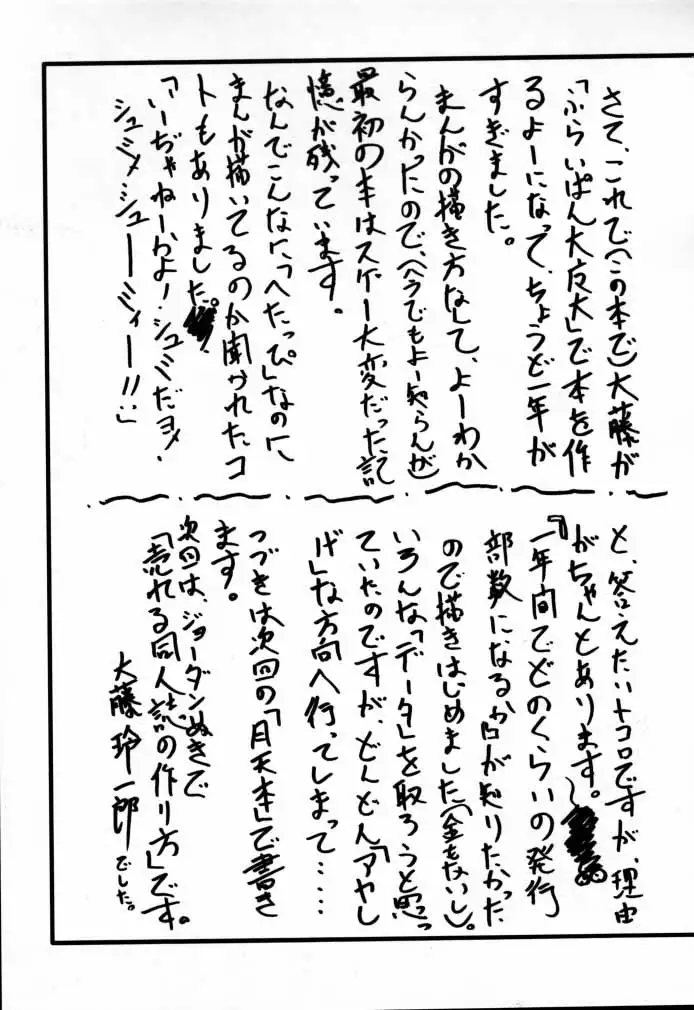 さて、これで(この本で)大藤が
「ふらいぱん大友大」で本を作
るよーになって、ちょうど一年が
すぎました。
まんがの描き方なして、よーわか
らんかったので、(今でもよー知らんが)
最初の本はスゲー大変だった記
憶が残っています。
なんでこんなに、「へたっぴ」なのに、
まんが描いてるのか聞かれたコ
トもありました。
「いーぢゃねーかよ!シュミだヨ!
シュミ!シューミィー!!」
と、答えたいトコロですが、理由
がちゃんとあります。
『一年間でどのくらいの発行
部数になるか』が知りたかった
ので描きはじめました(金もないし)。
いろんな「データ」を取ろうと思っ
ていたのですが、どんどん「アヤし
げ」な方向へ行ってしまって……
つづきは次回の「月天本」で書き
ます。
次回は、ジョーダンぬきで
「売れる同人誌の作り方」です。
大藤玲一郎でした。